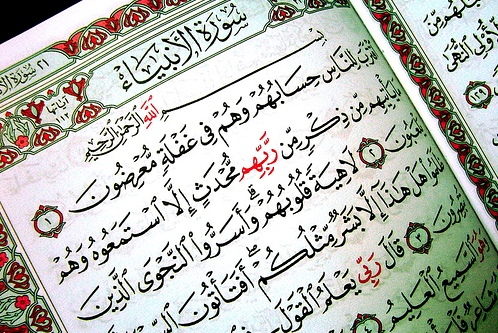 ٢١ سورة الأ
سُورَةُ الأَنبِيَاء
آياتها
١١٢
بِسْمِ اللَّهِ الرَّحْمَٰنِ الرَّحِيمِ
ٱقْتَرَبَ لِلنَّاسِ حِسَابُهُمْ وَهُمْ فِى غَفْلَةٍ مُّعْرِضُونَ ١
مَا يَأْتِيهِم مِّن ذِكْرٍ مِّن رَّبِّهِم مُّحْدَثٍ إِلَّا ٱسْتَمَعُوهُ وَهُمْ
يَلْعَبُونَ ٢ لَاهِيَةً قُلُوبُهُمْ ۗ وَأَسَرُّوا۟ ٱلنَّجْوَى ٱلَّذِينَ
ظَلَمُوا۟ هَلْ هَٰذَآ إِلَّا بَشَرٌ مِّثْلُكُمْ ۖ أَفَتَأْتُونَ
تُبْصِرُونَ ٣ قَالَ رَبِّى يَعْلَمُ ٱلْقَوْلَ
وَهُوَ ٱلسَّمِيعُ ٱلْعَلِيمُ